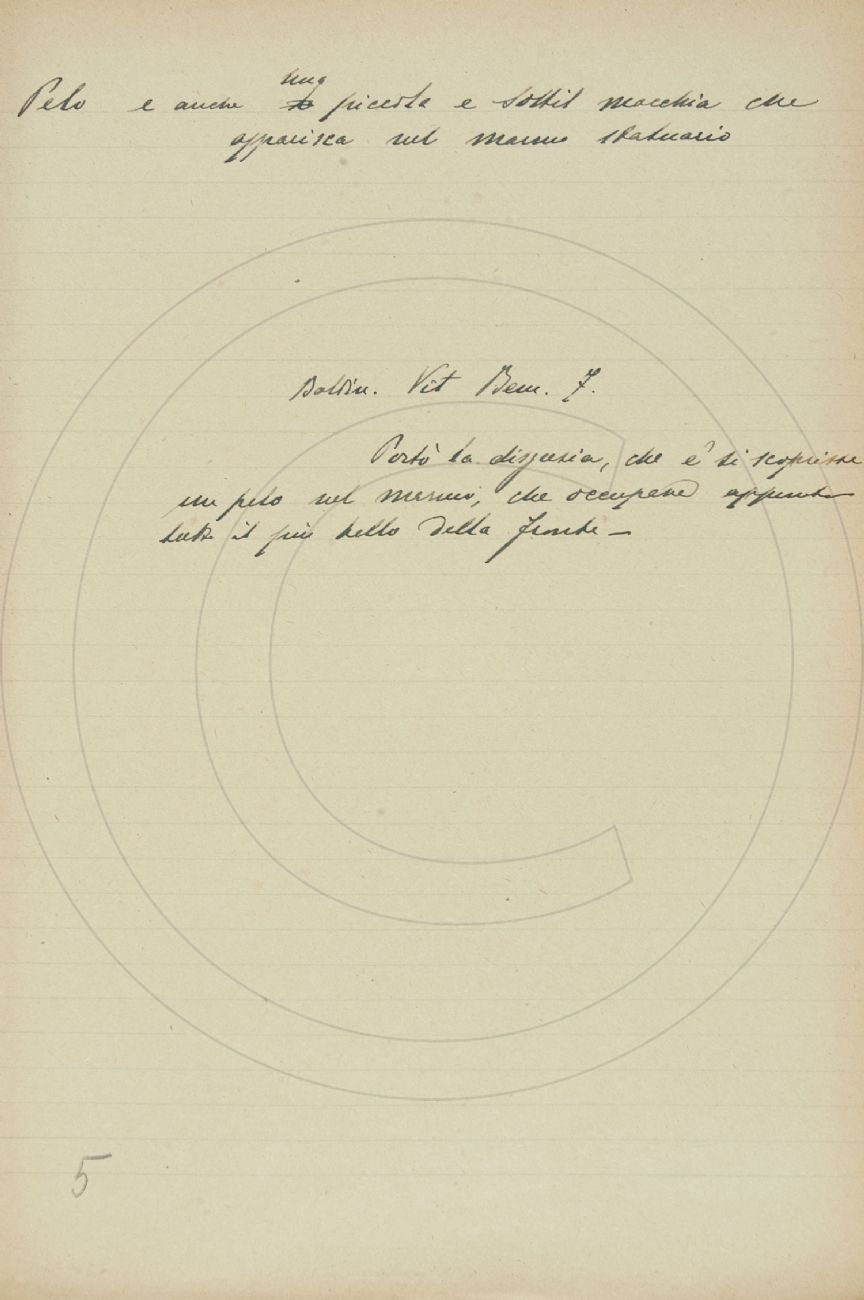 Pelo e anche una piccola e sottil macchia che
apparisca nel marmo statuario
Baldin. Vit Bern. 7.
Portò la disgrazia, che e' si scoprisse
un pelo nel marmo, che occupava appunto
tutto il più bello della fronte —
5